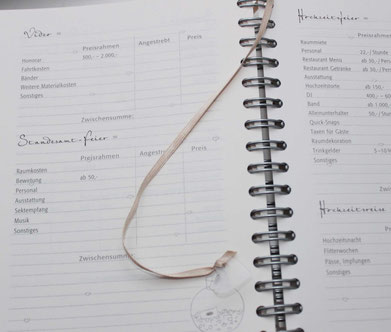 Video =
Preisrahmen Angestrebt Preis
Honorar 500,- - 2.000,-
Fahrtkosten
Bänder
Weitere Materialkosten
Sonstiges
Zwischensumme:
Standesamt-Feier =
Preisrahmen Angestrebt Preis
Raumkosten ab 50,-
Bewirtung
Personal
Ausstattung
Sektempfang
Musik
Sonstiges
Zwischensumme:
Hochzeitsfeier =
Preisra
Raummiete
Personal / Stunde
Restaurant Menü ab 50,- / Pers
Restaurant Getränke ab 35,- / Pers
Ausstattung
Hochzeitstorte ab 150,-
DJ
Band ab 1.000,-
Alleinunterhalter / Stund
Quick-Snaps
Taxen für Gäste
Raumdekoration
Trinkgelder 5-10%
Sonstiges
Hochzeitsreise
Hochzeitsnacht
Flitterwochen
Pässe, Impfungen
Sonstiges